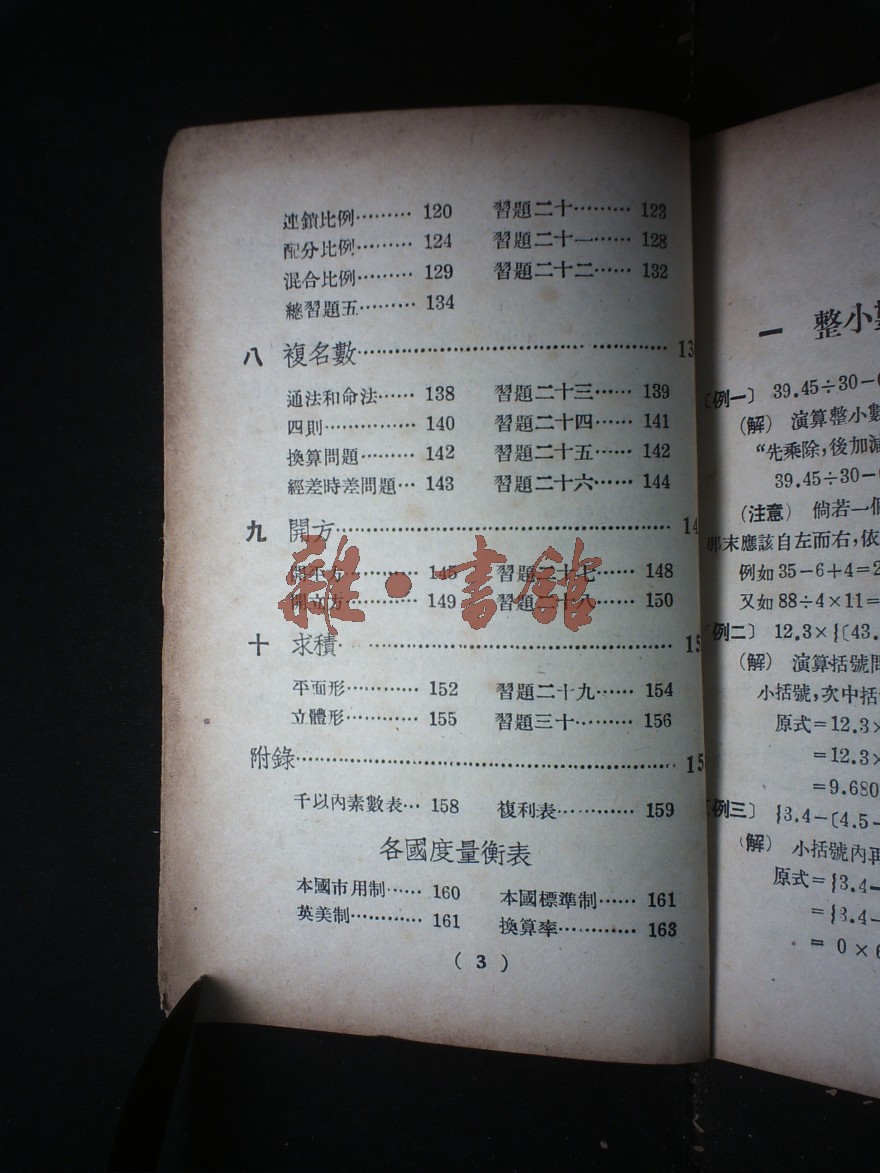 連鎖比例……… 120 習題二十……… 123
配分比例……… 124 習題二十一…… 128
混合比例……… 129 習題二十二…… 132
總習題五……… 134
八 複名數…………………………………… 13
通法和命法…… 138 習題二十三…… 139
四則………… 140 習題二十四…… 141
換算問題……… 142 習題二十五…… 142
經差時差問題… 143 習題二十六…… 144
九 開方…………………………………… 14
開平方………… 145 習題二十七…… 148
開立方………… 149 習題二十八…… 150
十 求積…………………………………… 15
平面形………… 152 習題二十九…… 154
立體形………… 155 習題三十……… 156
附錄…………………………………… 15
千以內素數表… 158 複利表………… 159
各國度量衡表
本國市用制…… 160 本國標準制…… 161
英美制………… 161 換算率………… 163
( 3 )
雜·書館
一 整小
〔例一〕 39.45÷30−
(解) 演算整小數
“先乘除,後加減
39.45÷30−
(注意) 倘若一個
那末應該自左而右,依
例如 35−6+4=2
又如 88÷4×11=
〔例二〕 12.3×{〔43.
(解) 演算括號問
小括號,次中括
原式=12.3×
=12.3×
=9.680
〔例三〕 {3.4−〔4.5−
(解) 小括號內再
原式={3.4−
={3.4−
= 0×